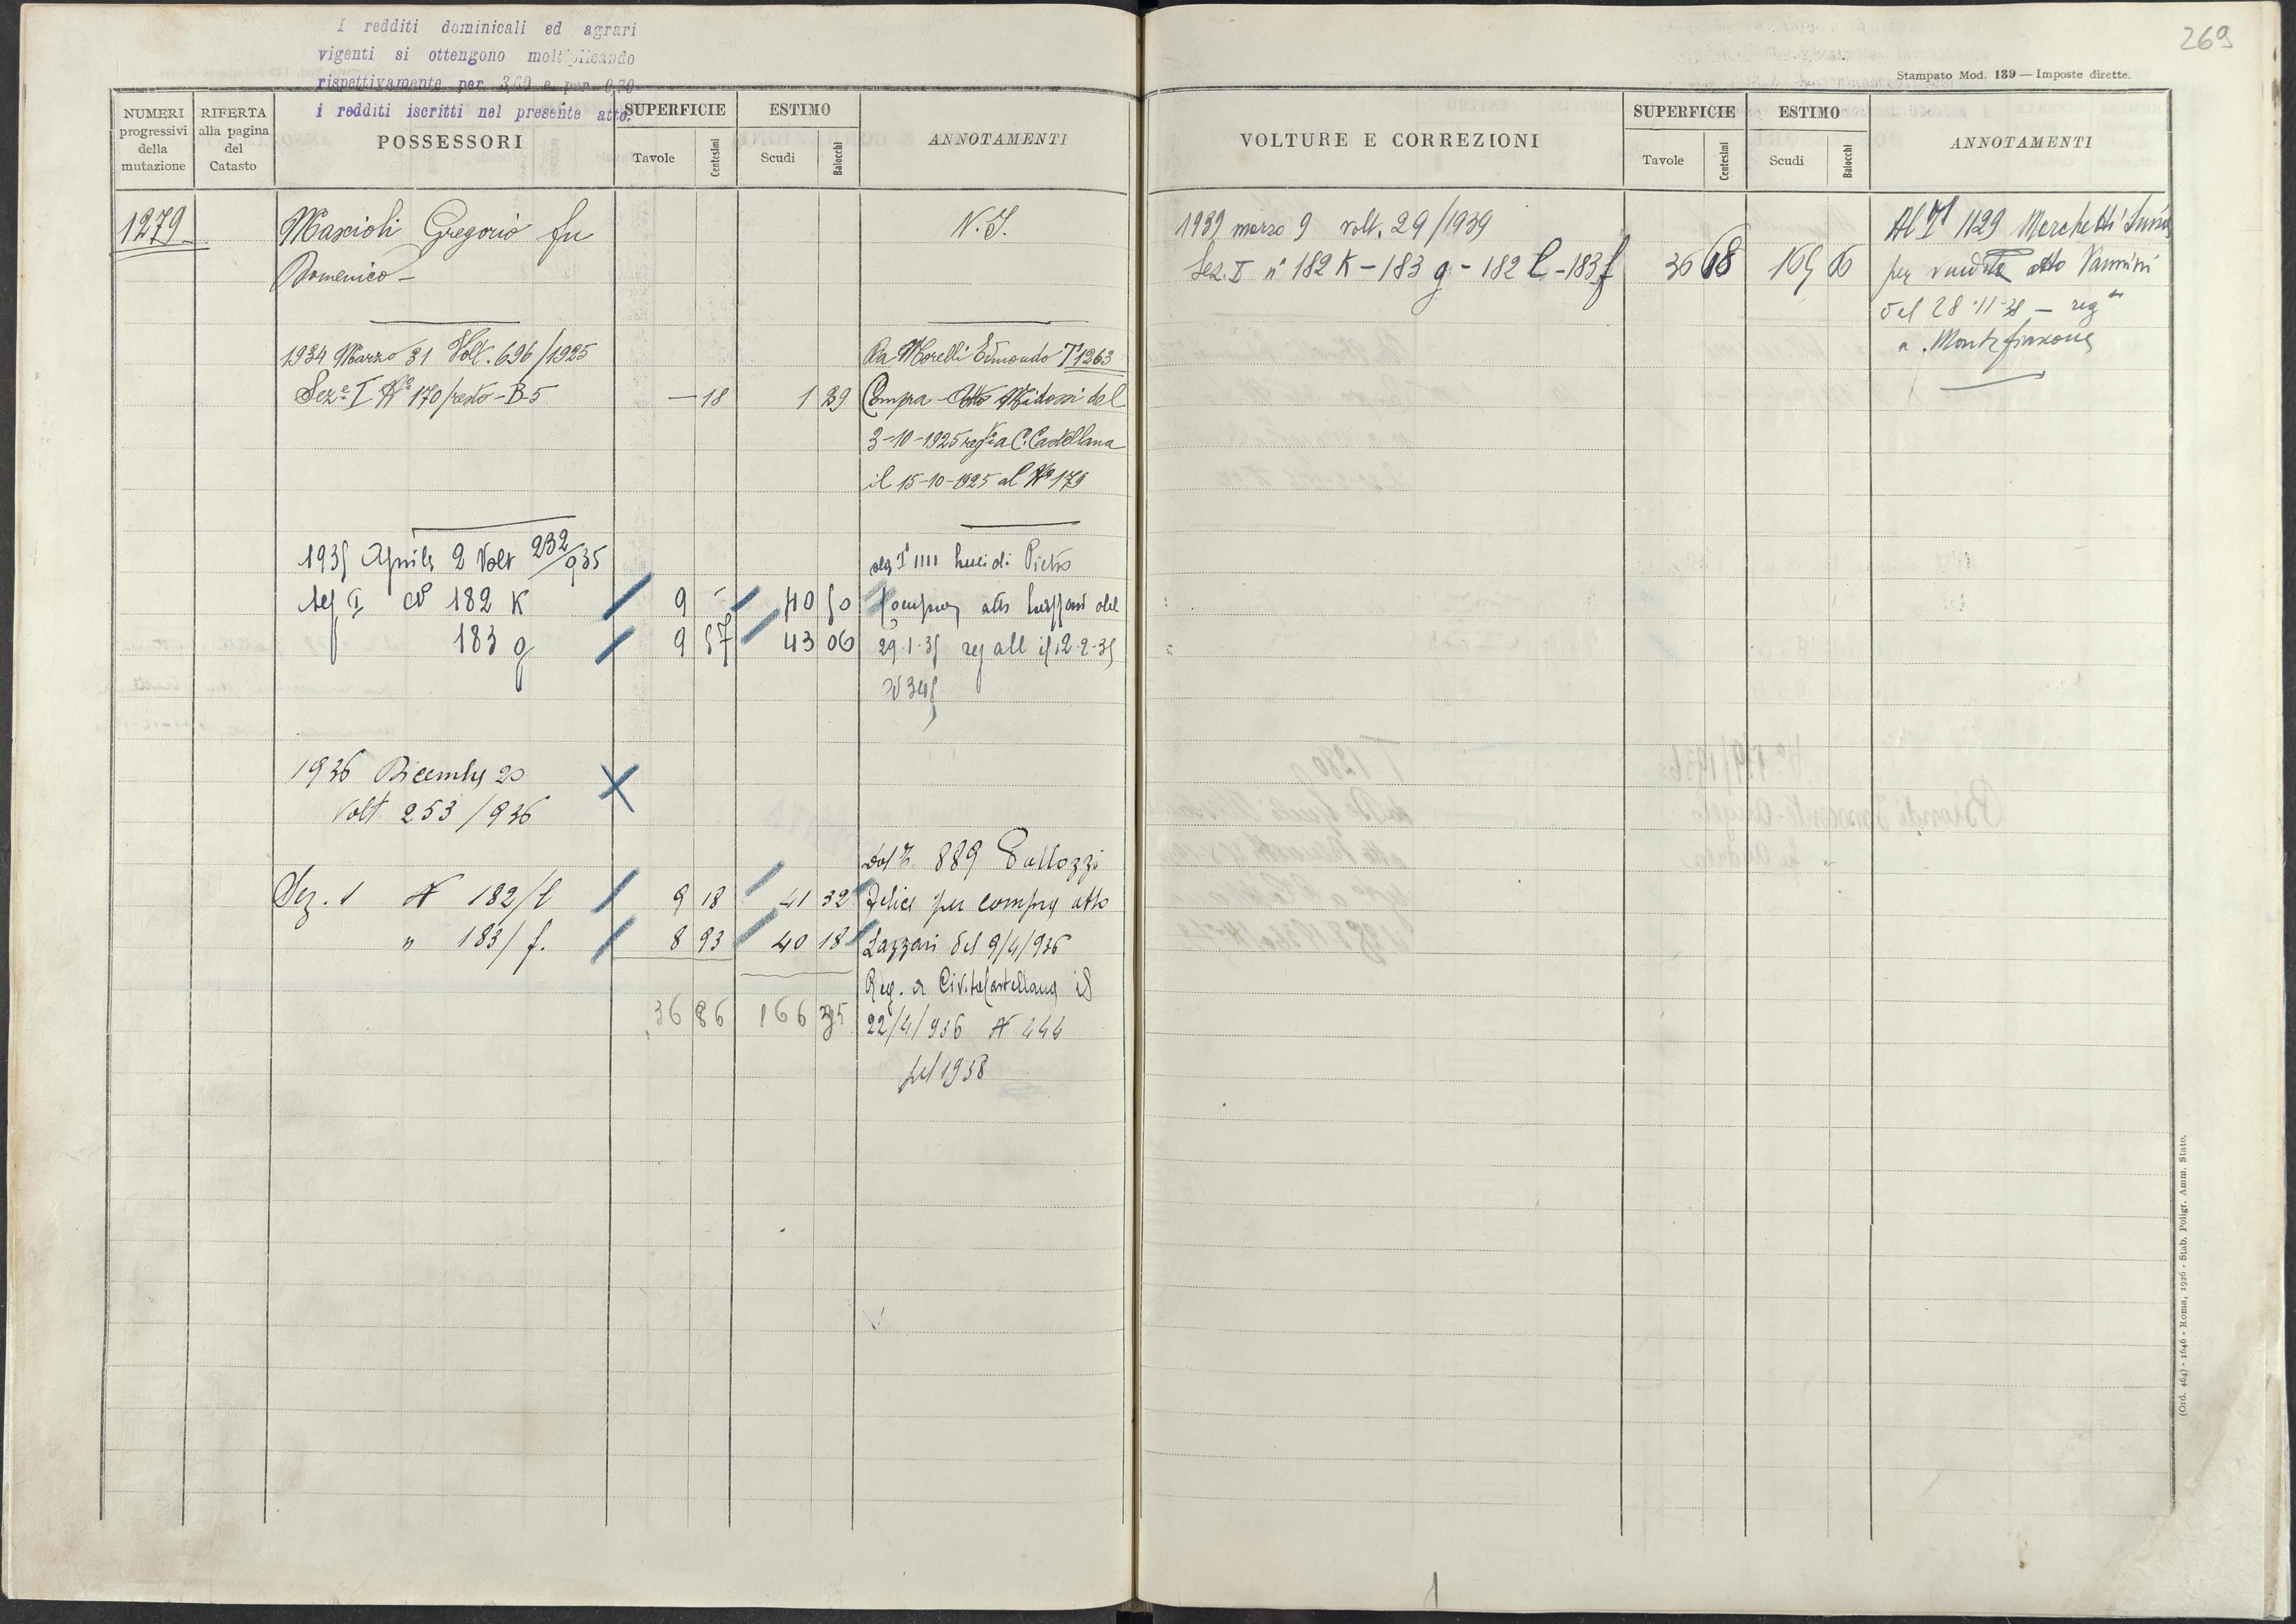 I redditi dominicali ed agrari
vigenti si ottengono moltiplicando
rispettivamente per 3,60 e per 0,70
i redditi iscritti nel presente atto.
269
Stampato Mod. 139 — Imposte dirette.
NUMERI progressivi della mutazione
RIFERTA alla pagina del Catasto
POSSESSORI
SUPERFICIE
Tavole
Centesimi
ESTIMO
Scudi
Baiocchi
ANNOTAMENTI
1279
Mascioli Gregorio fu
N. I.
Domenico —
1934 Marzo 31 Volt. 696/1925
Da Morelli Edmondo T 1263
Seze I No 170/resto - B-5 — 18 1 39
Compra Atto Midossi del
3-10-1925 regto a C. Castellana
il 15-10-1925 al No 179
1935 Aprile 2 Volt 232/935
T 1111 Lucidi Pietro
Sez I N 182 K 9 - 40 50
Compra atto Lazzari del
183 g 9 57 43 06
29-1-35 reg all il 12-2-35
N 345
1936 Dicembre 20
Volt 253/936
Dal T. 889 Gallozzi
Sez. 1 N 182/l 9 18 41 32
Felice per compra atto
" 183/f. 8 93 40 18
Lazzari del 9/4/936
Reg. a Civita Castellana il
36 86 166 35
22/4/936 N 444
pel 1938
VOLTURE E CORREZIONI
SUPERFICIE
Tavole
Centesimi
ESTIMO
Scudi
Baiocchi
ANNOTAMENTI
1939 marzo 9 volt. 29/1939
Al T 1129 Marchetti
Sez. I n° 182 K - 183 g - 182 l - 183 f 36 68 165 06
per vendita atto Vannini
del 28-11-38 — regto
a Montefiascone
(Ord. 464) - 1646 - Roma, 1926 - Stab. Poligr. Amm. Stato.
1